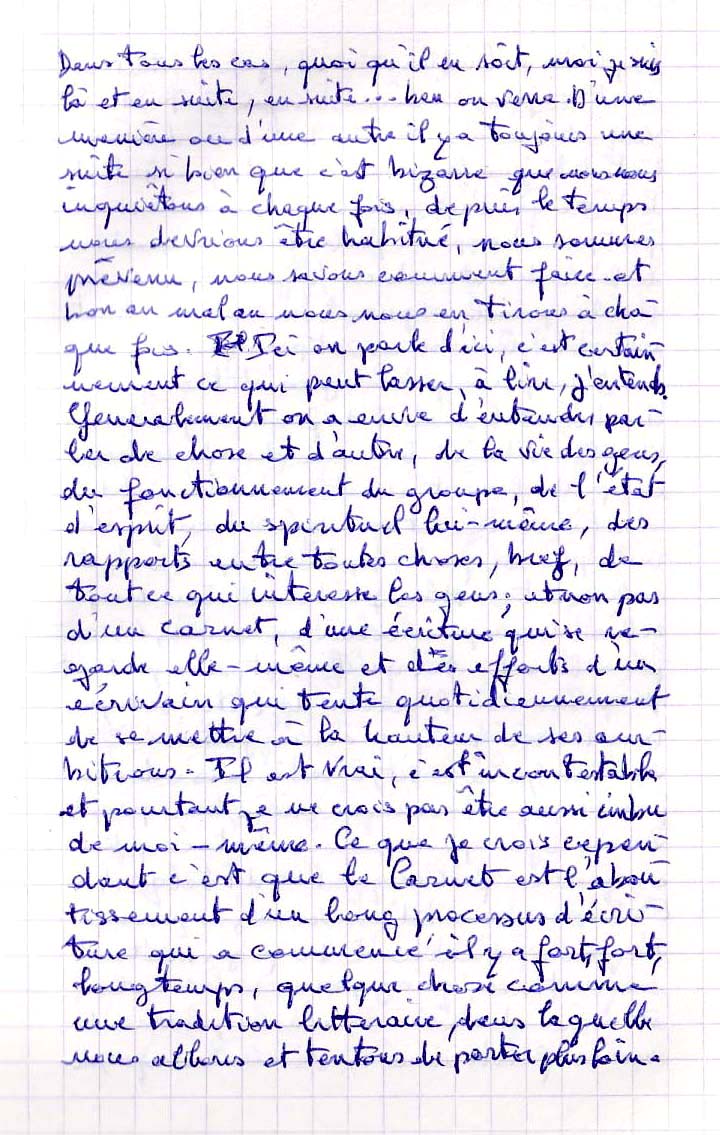 Dans tous les cas, quoi qu'il en soit, moi je suis
là et ensuite, ensuite... ben on verra. D'une
manière ou d'une autre il y a toujours une
suite si bien que c'est bizarre que nous nous
inquiétons à chaque fois, depuis le temps
nous devrions être habitué, nous sommes
prévenu, nous savons comment faire et
bon an mal an nous nous en tirons à cha-
que fois. Ici on parle d'ici, c'est certain-
nement ce qui peut lasser, à lire, j'entends.
Généralement on a envie d'entendre par-
ler de chose et d'autre, de la vie des gens,
du fonctionnement du groupe, de l'état
d'esprit, du spirituel lui-même, des
rapports entre toutes choses, bref, de
tout ce qui intéresse les gens; et non pas
d'un carnet, d'une écriture qui se re-
garde elle-même et des efforts d'un
écrivain qui tente quotidiennement
de se mettre à la hauteur de ses am-
bitions. Il est vrai, c'est incontestable
et pourtant je ne crois pas être aussi imbu
de moi-même. Ce que je crois cepen-
dant c'est que le Carnet est l'abou-
tissement d'un long processus d'écri-
ture qui a commencé il y a fort, fort,
longtemps, quelque chose comme
une tradition littéraire, dans laquelle
nous et tentons de porter plus loin.